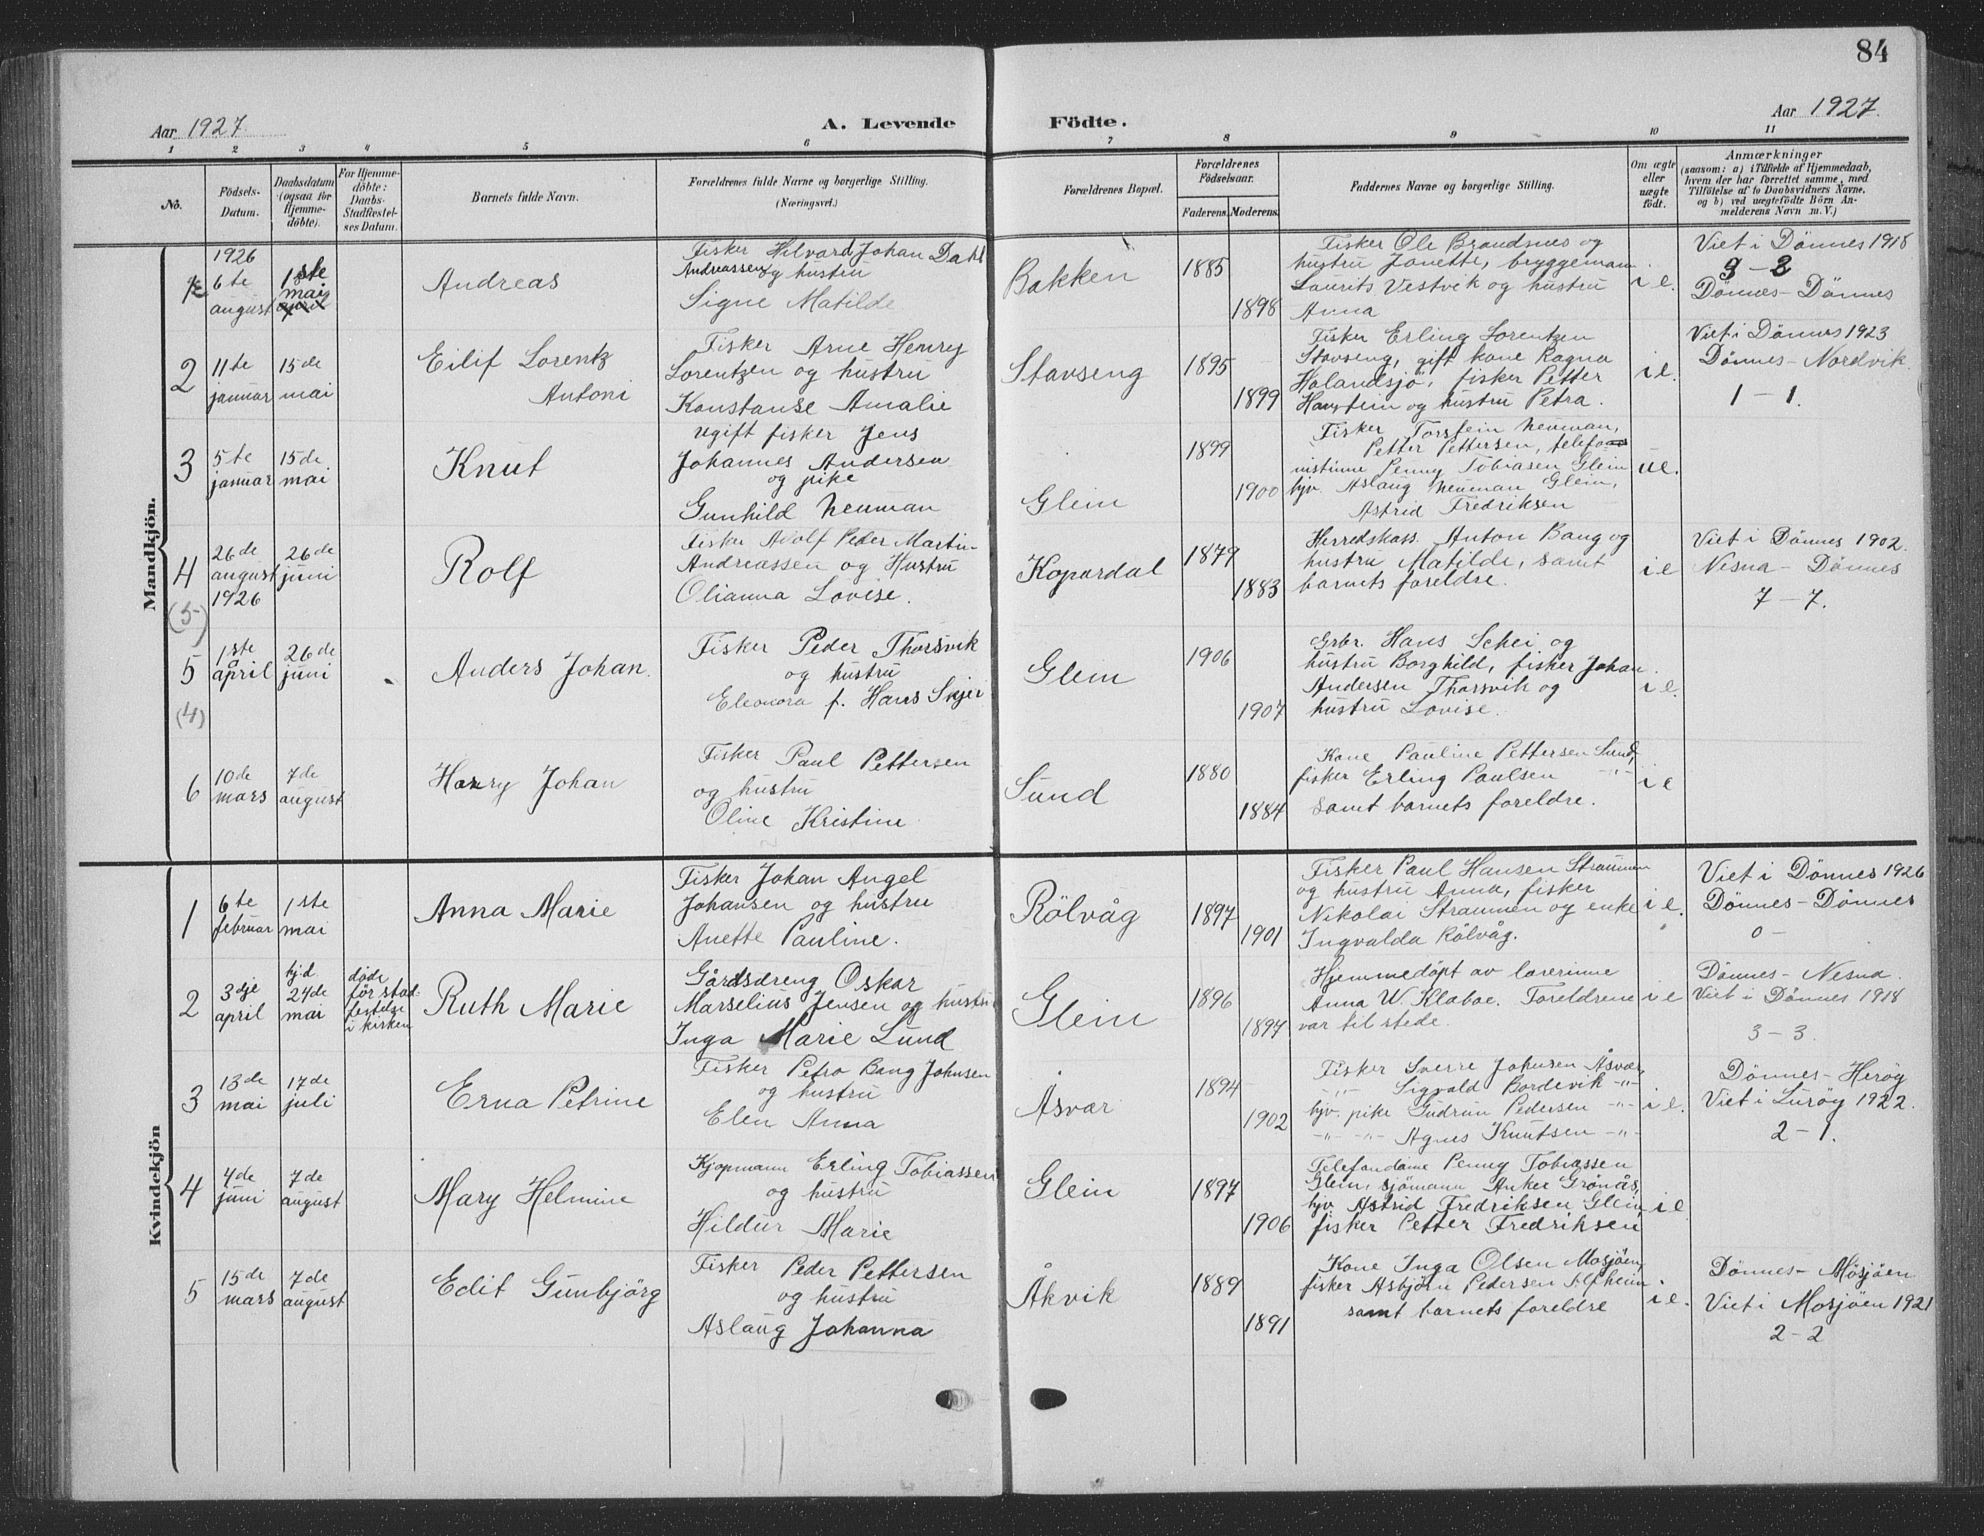 84
Aar 1927. A. Levende Födte. Aar 1927.
1 2 3 4 5 6 7 8 9 10 11
No.
Födsels-
Datum.
Daabsdatum
(ogsaa for
Hjemme-
döbte).
For Hjemme-
döbte:
Daabs-
Stadfæstel-
ses Datum.
Barnets fulde Navn.
Forældrenes fulde Navne og borgerlige Stilling.
(Næringsvei.)
Forældrenes Bopæl.
Forældrenes
Födselsaar.
Faderens. Moderens.
Faddernes Navne og borgerlige Stilling.
Om ægte
eller
uægte
födt.
Anmærkninger
(saasom: a) i Tilfælde af Hjemmedaab,
hvem der har forrettet samme, med
Tilföielse af to Daabsvidners Navne,
og b) ved uægtefödte Börn An-
melderens Navn m. V.)
Mandkjön.
1
1926
6te
august
1ste
mai
april
Andreas
Fisker Hilvard Johan Dahl
Andreassen og hustru
Signe Matilde
Bakken
1885
1898
Fisker Ole Brandsnes og
hustru Jonette, bryggemann
Laurits Vestvik og hustru
Anna
i e.
Viet i Dönnes 1918
3 – 2
Dönnes – Dönnes
2
11te
januar
15de
mai
Eilif Lorentz
Antoni
Fisker Arne Henry
Lorentzen og hustru
Konstanse Amalie
Stavseng
1895
1899
Fisker Erling Lorentzen
Stavseng, gift kone Ragna
Holandsjö, fisker Petter
Haustein og hustru Petra.
i e.
Viet i Dönnes 1923
Dönnes – Nordvik.
1 – 1.
3
5te
januar
15de
mai
Knut
Ugift fisker Jens
Johannes Andersen
og pike
Gunhild Neuman
Glein
1899
1900
Fisker Torstein Neuman,
Petter Pettersen, telefo
nistinne Penny Tobiasen Glein
hjv. Aslaug Neuman Glein,
Astrid Fredriksen
u e.
4
(5)
26de
august
1926
26de
juni
Rolf
Fisker Adolf Peder Martin
Andreassen og Hustru
Olianna Lovise.
Kopardal
1879
1883
Herredskass. Anton Bang og
hustru Matilde, samt
barnets foreldre.
i e
Viet i Dönnes 1902.
Nesna – Dönnes
7 – 7.
5
(4)
1ste
april
26de
juni
Anders Johan.
Fisker Peder Thorsvik
og hustru
Eleonora f. Hans Skjei
Glein
1906
1907
Grbr. Hans Schei og
hustru Borghild, fisker Johan
Andersen Thorsvik og
hustru Lovise.
i e.
6
10de
mars
7de
august
Harry Johan
Fisker Paul Pettersen
og hustru
Oline Kristine
Sund
1880
1884
Kone Pauline Pettersen Sund,
fisker Erling Paulsen –"–
samt barnets foreldre.
i e
Kvindekjön
1
6te
februar
1ste
mai
Anna Marie
Fisker Johan Angel
Johansen og hustru
Anette Pauline.
Rölvåg
1897
1901
Fisker Paul Hansen Straumen
og hustru Anna, fisker
Nikolai Straumen og enke
Ingvalda Rölvåg.
i e.
Viet i Dönnes 1926
Dönnes – Dönnes
0 –
2
3dje
april
hjd
24de
mai
døde
før stad
festelse
i kirken
Ruth Marie
Gårdsdreng Oskar
Marselius Jensen og hustru
Inga Marie Lund
Glein
1896
1897
Hjemmedöpt av lærerinne
Anna W. Klaboe. Foreldrene
var til stede.
i e
Dönnes – Nesna.
Viet i Dönnes 1918
3 – 3.
3
13de
mai
17de
juli
Erna Petrine
Fisker Petro Bang Johnsen
og hustru
Elen Anna
Åsvær
1894
1902
Fisker Sverre Johnsen Åsvær,
–"– Sigvald Bordevik –"–
hjv. pike Gudrun Pedersen –"–
–"– –"– Agnes Knutsen –"–
i e.
Dönnes – Heröy
Viet i Luröy 1922.
2 – 1.
4
4de
juni
7de
august
Mary Helmine
Kjøpmann Erling Tobiassen
og hustru
Hildur Marie
Glein
1897
1906
Telefondame Penny Tobiassen
Glein, sjömann Anker Grönås,
hjv. Astrid Fredriksen Glein,
fisker Petter Fredriksen
i e.
5
15de
mars
7de
august
Edit Gunbjörg
Fisker Peder Pettersen
og hustru
Aslaug Johanna
Åkvik
1889
1891
Kone Inga Olsen Mosjöen,
fisker Asbjörn Pedersen Alfheim
samt barnets foreldre
i e.
Dönnes – Mosjöen
Viet i Mosjöen 1921
2 – 2